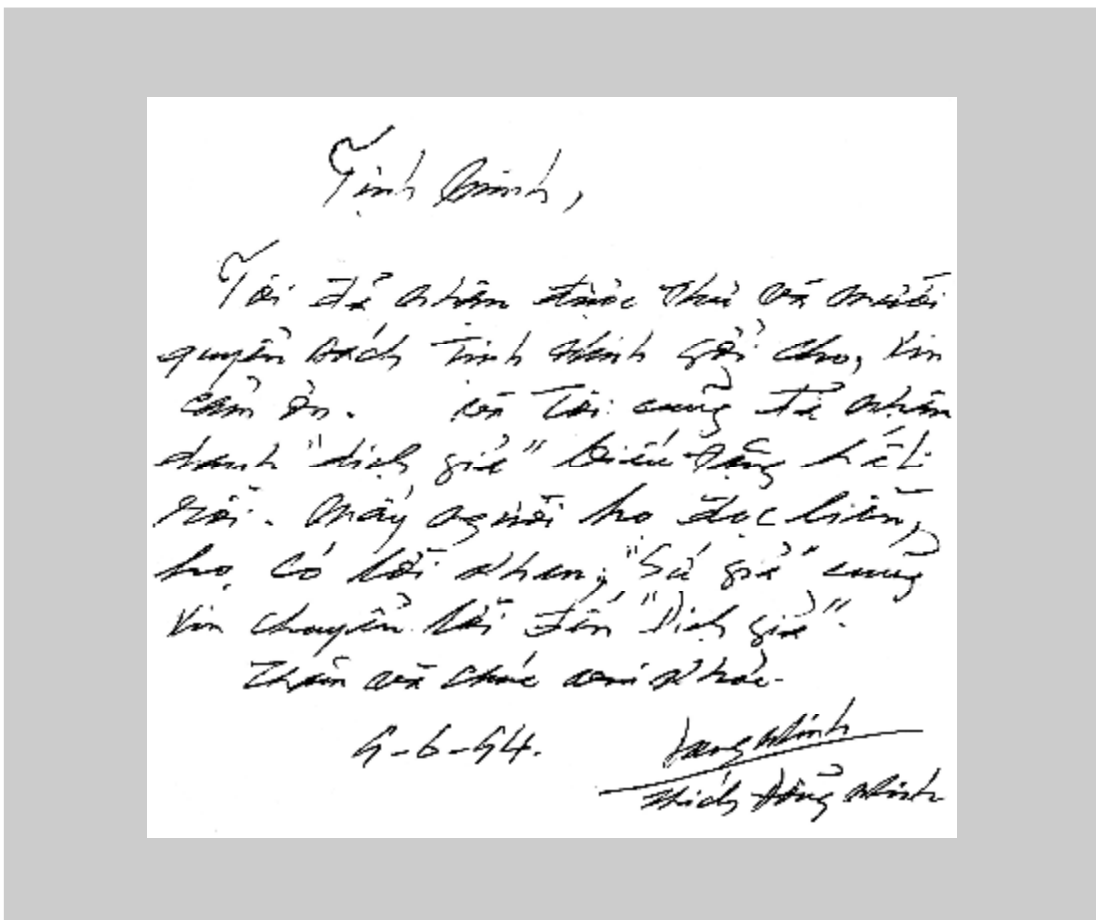 Tịnh Minh,
Tôi đã nhận được thư và mười
quyển sách Tịnh Minh gởi cho, xin
cảm ơn. Tôi cũng đã nhân
danh "dịch giả" biếu tặng hết
rồi. Mấy người họ đọc liền,
họ có lời khen, "Sứ giả" cũng
xin chuyển lời đến "Dịch giả".
Thăm và chúc
Thích Đổng Minh